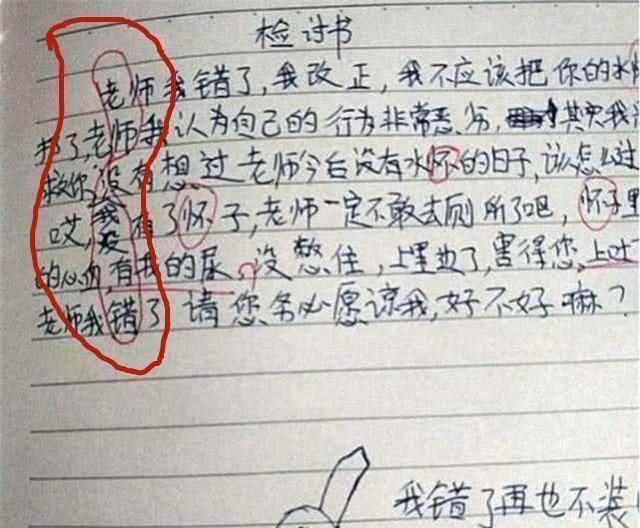 检讨书
老师我错了,我改正,我不应该把你的水
了,老师我认为自己的行为非常恶劣,其实我
救你,没有想过老师今后没有水怀的日子,该怎么过
哎,我没有了怀子,老师一定不敢去厕所了吧,怀子里
的心血,有我的尿,没憋住,上里边了,害得您,上吐
老师我错了 请您务必愿谅我,好不好嘛?
我错了再也不装